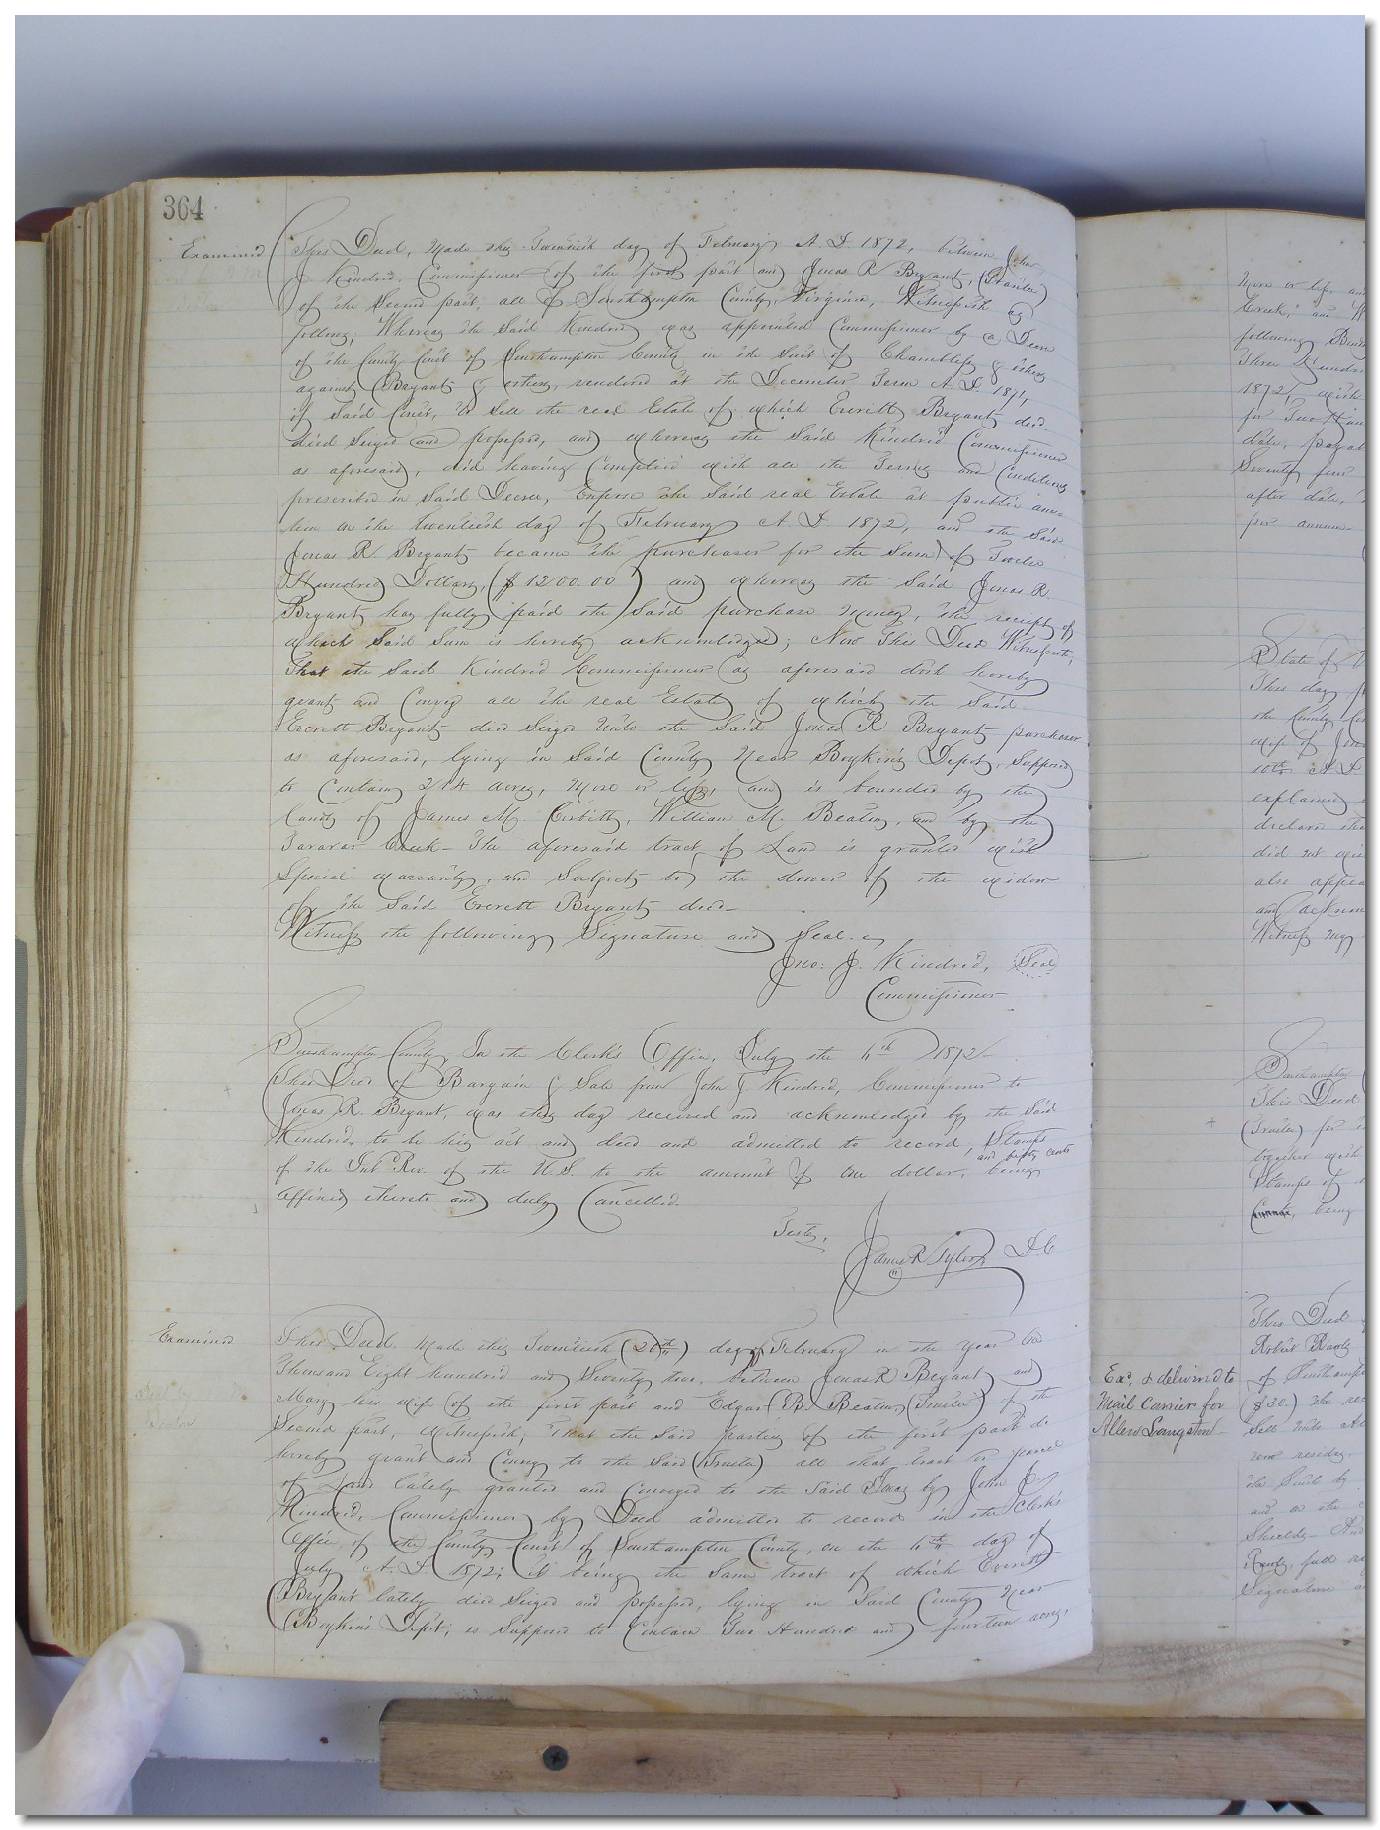 364
Examined
This Deed, made this Twentieth day of February A. D. 1872, between John
J Kindred, Commissioner of the first part and Jonas R Bryant, (Grantee)
of the Second part, all of Southampton County, Virginia, Witnesseth as
follows; Whereas the said Kindred was appointed Commissioner by a Decree
of the County Court of Southampton County in the Suit of Chambliss & others
against Bryant & others, rendered at the December Term A. D. 1871,
of said Court, to Sell the real Estate of which Everitt Bryant decd
died Seized and possessed, and whereas the said Kindred Commissioner
as aforesaid, did having Complied with all the Terms and Conditions
prescribed in said Decree, Expose the said real Estate at public auc-
tion on the twentieth day of February A. D. 1872, and the said
Jonas R. Bryant became the purchaser for the Sum of Twelve
Hundred Dollars, ($1200.00) and whereas the said Jonas R.
Bryant has fully paid the said purchase money, the receipt of
which said Sum is hereby acknowledged; Now This Deed Witnesseth,
That the said Kindred Commissioner as aforesaid doth hereby
grant and Convey all the real Estate of which the said
Everett Bryant died Seized unto the said Jonas R Bryant purchaser
as aforesaid, lying in said County near Boykin's Depot, Supposed
to Contain 214 acres, more or less, and is bounded by the
lands of James M. William M. Beaton, and by the
Tarara Creek - The aforesaid tract of Land is granted with
Special warranty, and Subject to the dower of the widow
of the said Everett Bryant decd-
Witness the following Signature and Seal.
Jno: J. Kindred, Seal
Commissioner
Southampton County, In the Clerk's Office, July the 4th 1872-
This Deed of Bargain & Sale from John J Kindred, Commissioner to
Jonas R. Bryant, was this day received and acknowledged by the said
Kindred to be his act and deed and admitted to record, Stamps
and fifty cents
of the Int Rev. of the U.S. to the amount of one dollar, being
affixed thereto and duly Cancelled.
Teste,
James R Tyler D.C
Examined
This Deed made this Twentieth (20th) day of February in the year one
Thousand Eight hundred and Seventy two, between Jonas R Bryant and
Mary his wife of the first part and Edgar B. Beaton (Trustee) of the
Second part, Witnesseth; That the said parties of the first part do
hereby grant and Convey to the said (Trustee) all that tract or parcel
of Land lately granted and Conveyed to the said Jonas by John J.
Kindred, Commissioner by Deed admitted to record in the Clerk's
Office of the County Court of Southampton County, on the 4th day of
July A. D 1872; it being the Same tract of which Everett
Bryant lately died Seized and possessed, lying in Said County near
Boykin's Depot; is Supposed to Contain Two Hundred and fourteen acres,
more or less an
Creek; and W
following
Three Hundre
1872, with
for Two Hun
date, payab
Seventy four
after date,
per annum
State of V
This day
the County
wife of Jon
10th A.D
explained
declared tha
did not wis
also appea
and acknow
Witness my
Southampton
This Deed
(Trustee) for
together with
Stamps of
being
Exd, & delivered to
Mail Carrier for
Allen Langston
This Deed
Robert
of Southampt
($30.) the rec
Sell unto
now resides
and on the
Signature a